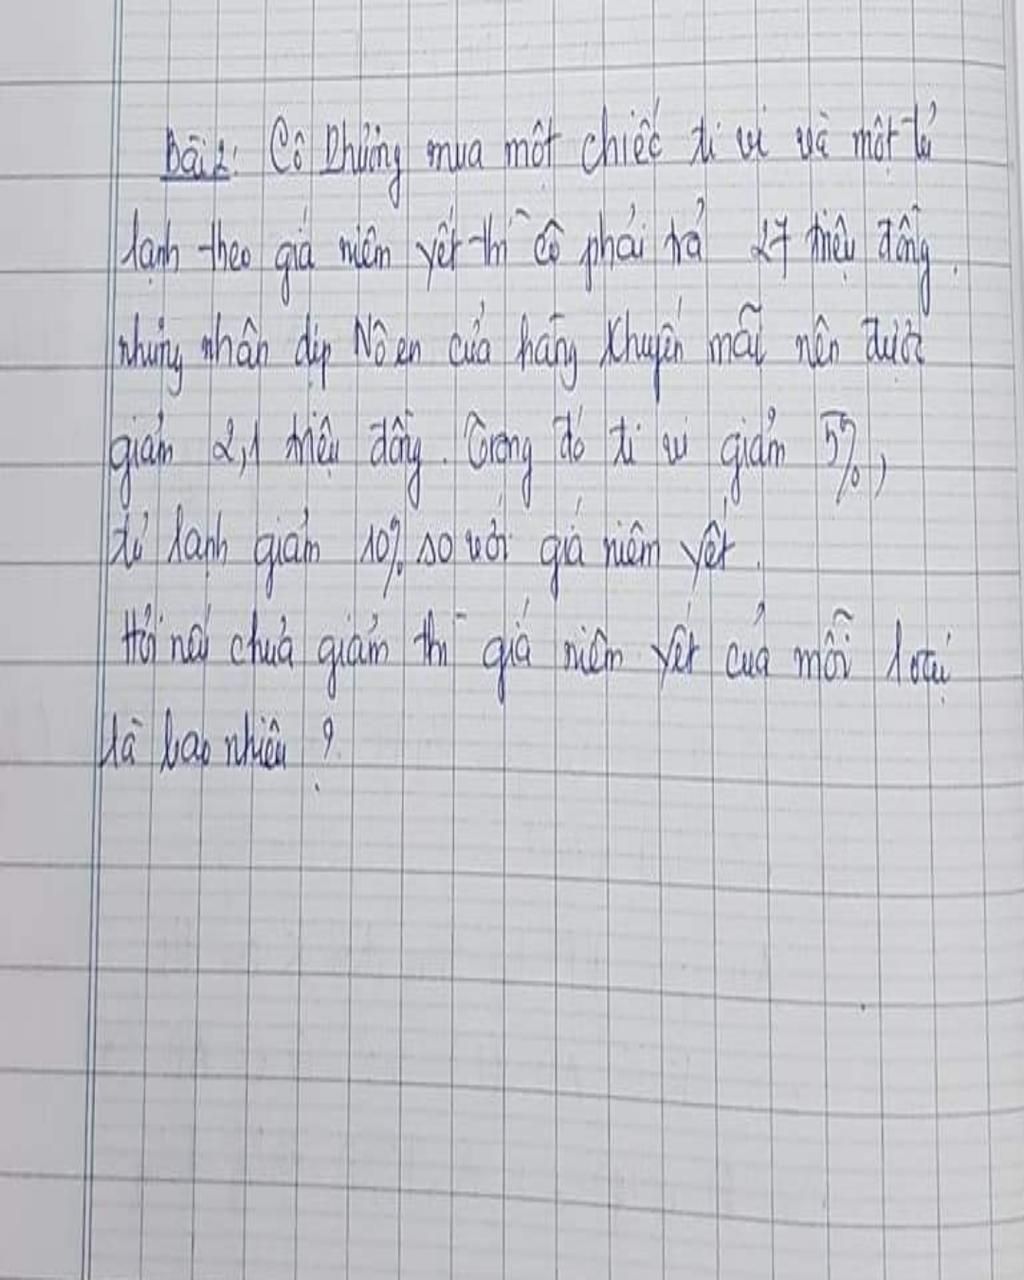 Bài 2: Cô Phương mua một chiếc ti vi và một tủ
lạnh theo giá niêm yết thì cô phải trả 27 triệu đồng.
nhưng nhân dịp Nô en cửa hàng khuyến mãi nên được
giảm 2,1 triệu đồng. Trong đó ti vi giảm 5%,
tủ lạnh giảm 10% so với giá niêm yết.
Hỏi nếu chưa giảm thì giá niêm yết của mỗi loại
là bao nhiêu ?